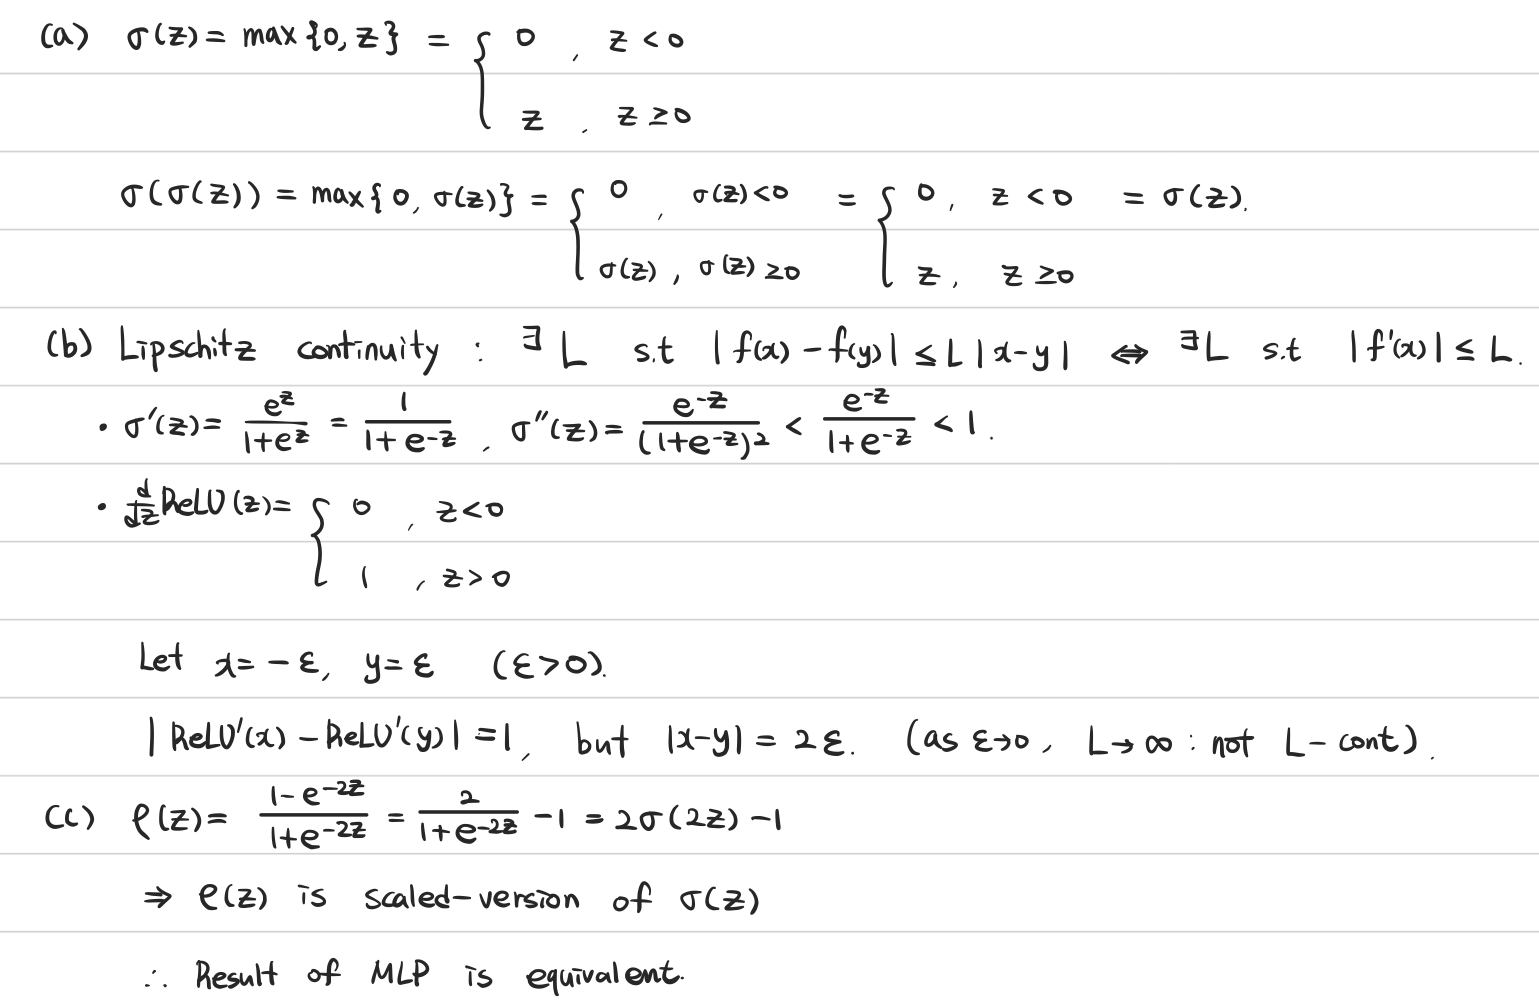 (a) σ(z) = max{0, z} = { 0 , z < 0
z , z ≥ 0
σ(σ(z)) = max{0, σ(z)} = { 0 , σ(z) < 0 = { 0, z < 0 = σ(z).
σ(z) , σ(z) ≥ 0 z, z ≥ 0
(b) Lipschitz continuity : ∃L s.t |f(x) - f(y)| ≤ L|x-y| ⇔ ∃L s.t |f'(x)| ≤ L.
• σ'(z) = e^z / 1+e^z = 1 / 1+e^-z , σ''(z) = e^-z / (1+e^-z)² < e^-z / 1+e^-z < 1.
• d/dz ReLU(z) = { 0 , z < 0
1 , z > 0
Let x = -ε, y = ε (ε > 0).
|ReLU'(x) - ReLU'(y)| = 1, but |x-y| = 2ε. (as ε→0, L→∞ : not L-cont).
(c) ρ(z) = 1-e^-2z / 1+e^-2z = 2 / 1+e^-2z - 1 = 2σ(2z) - 1
⇒ ρ(z) is scaled-version of σ(z)
∴ Result of MLP is equivalent.